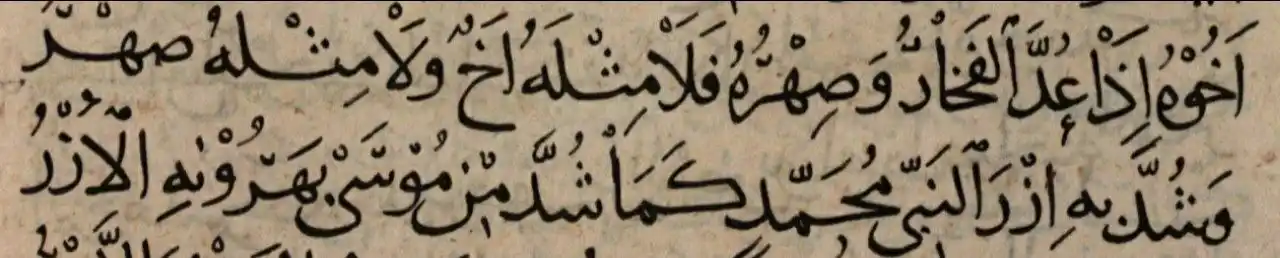 اَخُوْهُ اِذَا عُدَّ الفَخَارُ وَصِهْرُهُ فَلَا مِثْلَهُ اَخٌ وَلَا مِثْلَهُ صِهْرُ
وَشُدَّ بِهِ اَزْرُ النَبِيِّ مُحَمَّدٍ كَمَا شُدَّ مِنْ مُوْسَىْ بِهَرُوْنِهِ الْاَزْرُ